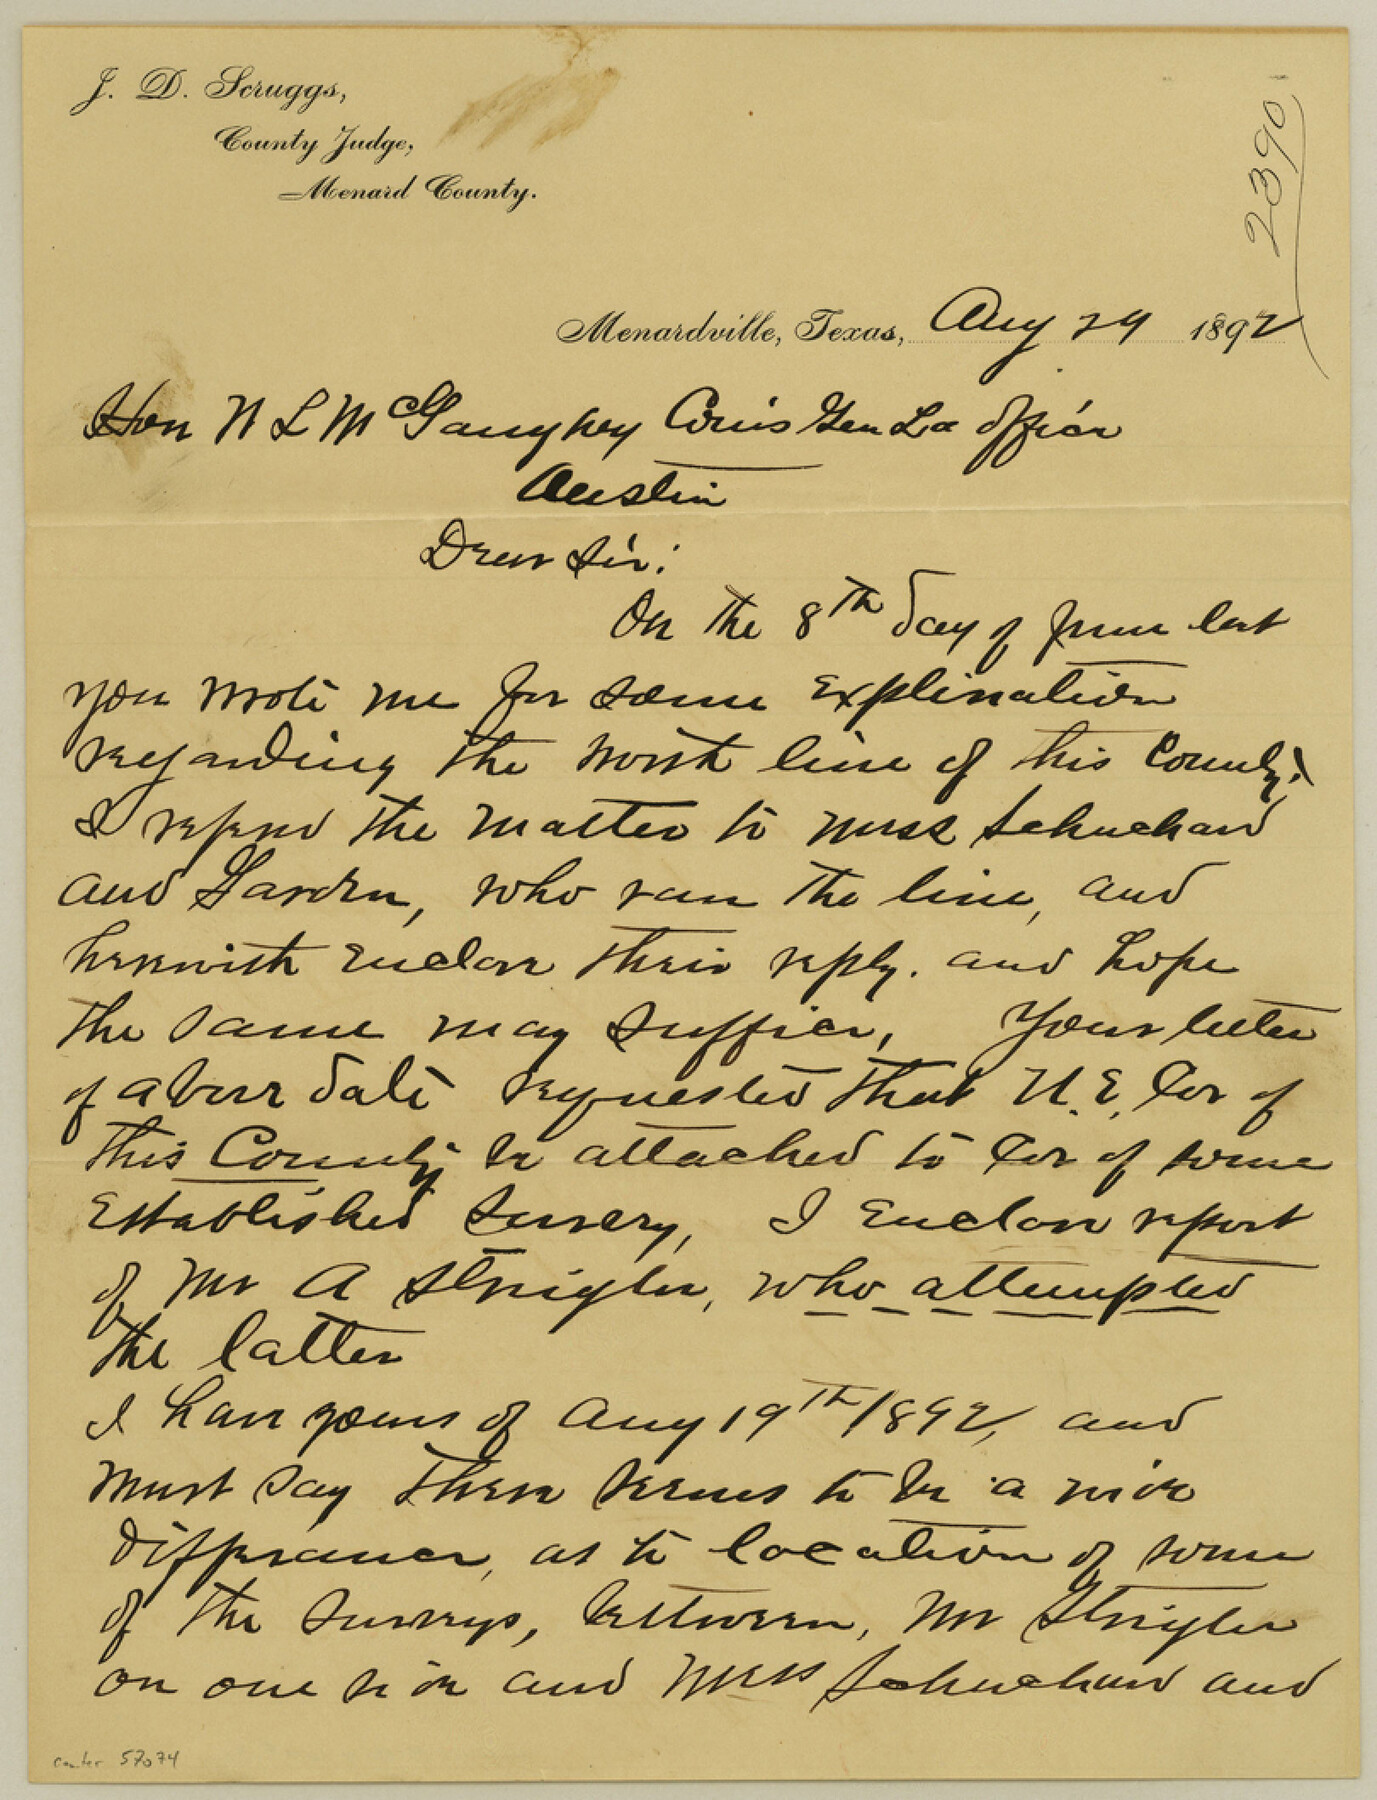 J. D. Scruggs,
County Judge,
Menard County.
2390
Menardville, Texas, Aug 29 1892
Hon W L McGaughey Comis Gen La office
Austin
Dear Sir:
On the 8th day of June last
you wrote me for some Explination
regarding the North line of this County;
I referd the matter to Mess Schuchard
and Garden, who ran the line, and
herewith Enclose their reply. and hope
the same may suffice, Your letter
of above date requested that N.E. Cor of
this County be attached to Cor of some
Established Survey, I Enclose report
of Mr A Striegler, who attempted
the latter
I have yours of Aug 19th/892, and
must say there seems to be a wide
differance, as to location of some
of the Surveys, between, Mr Striegler
on one side and Mess Schuchard and
counter 57074